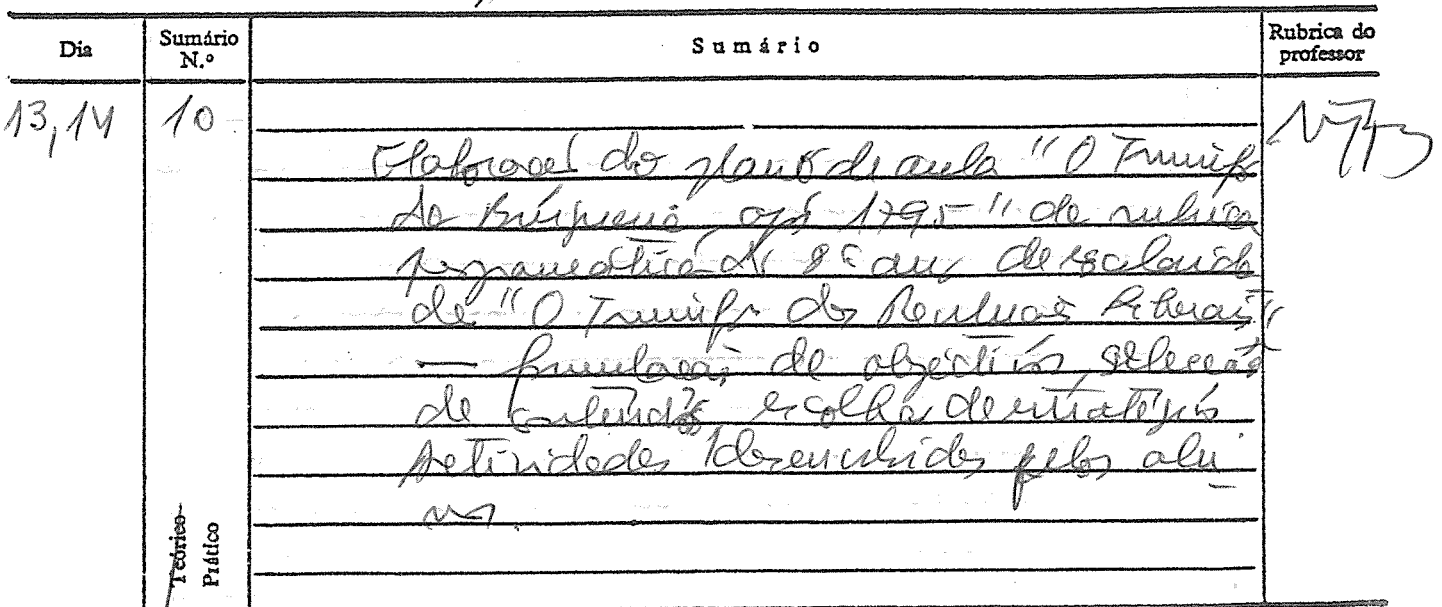 Dia
Sumário N.º
Sumário
Rubrica do professor
13, 14
10
Elaboração do plano de aula "O Triunfo
da Burguesia após 1795" da rubrica
programática do 8º ano de escolaridade
de "O Triunfo das Revoluções Liberais"
— formulação de objectivos, selecção
de conteúdos escolha de estratégias
Actividades desenvolvidas pelos alu-
nos.
Teórico-
Prático